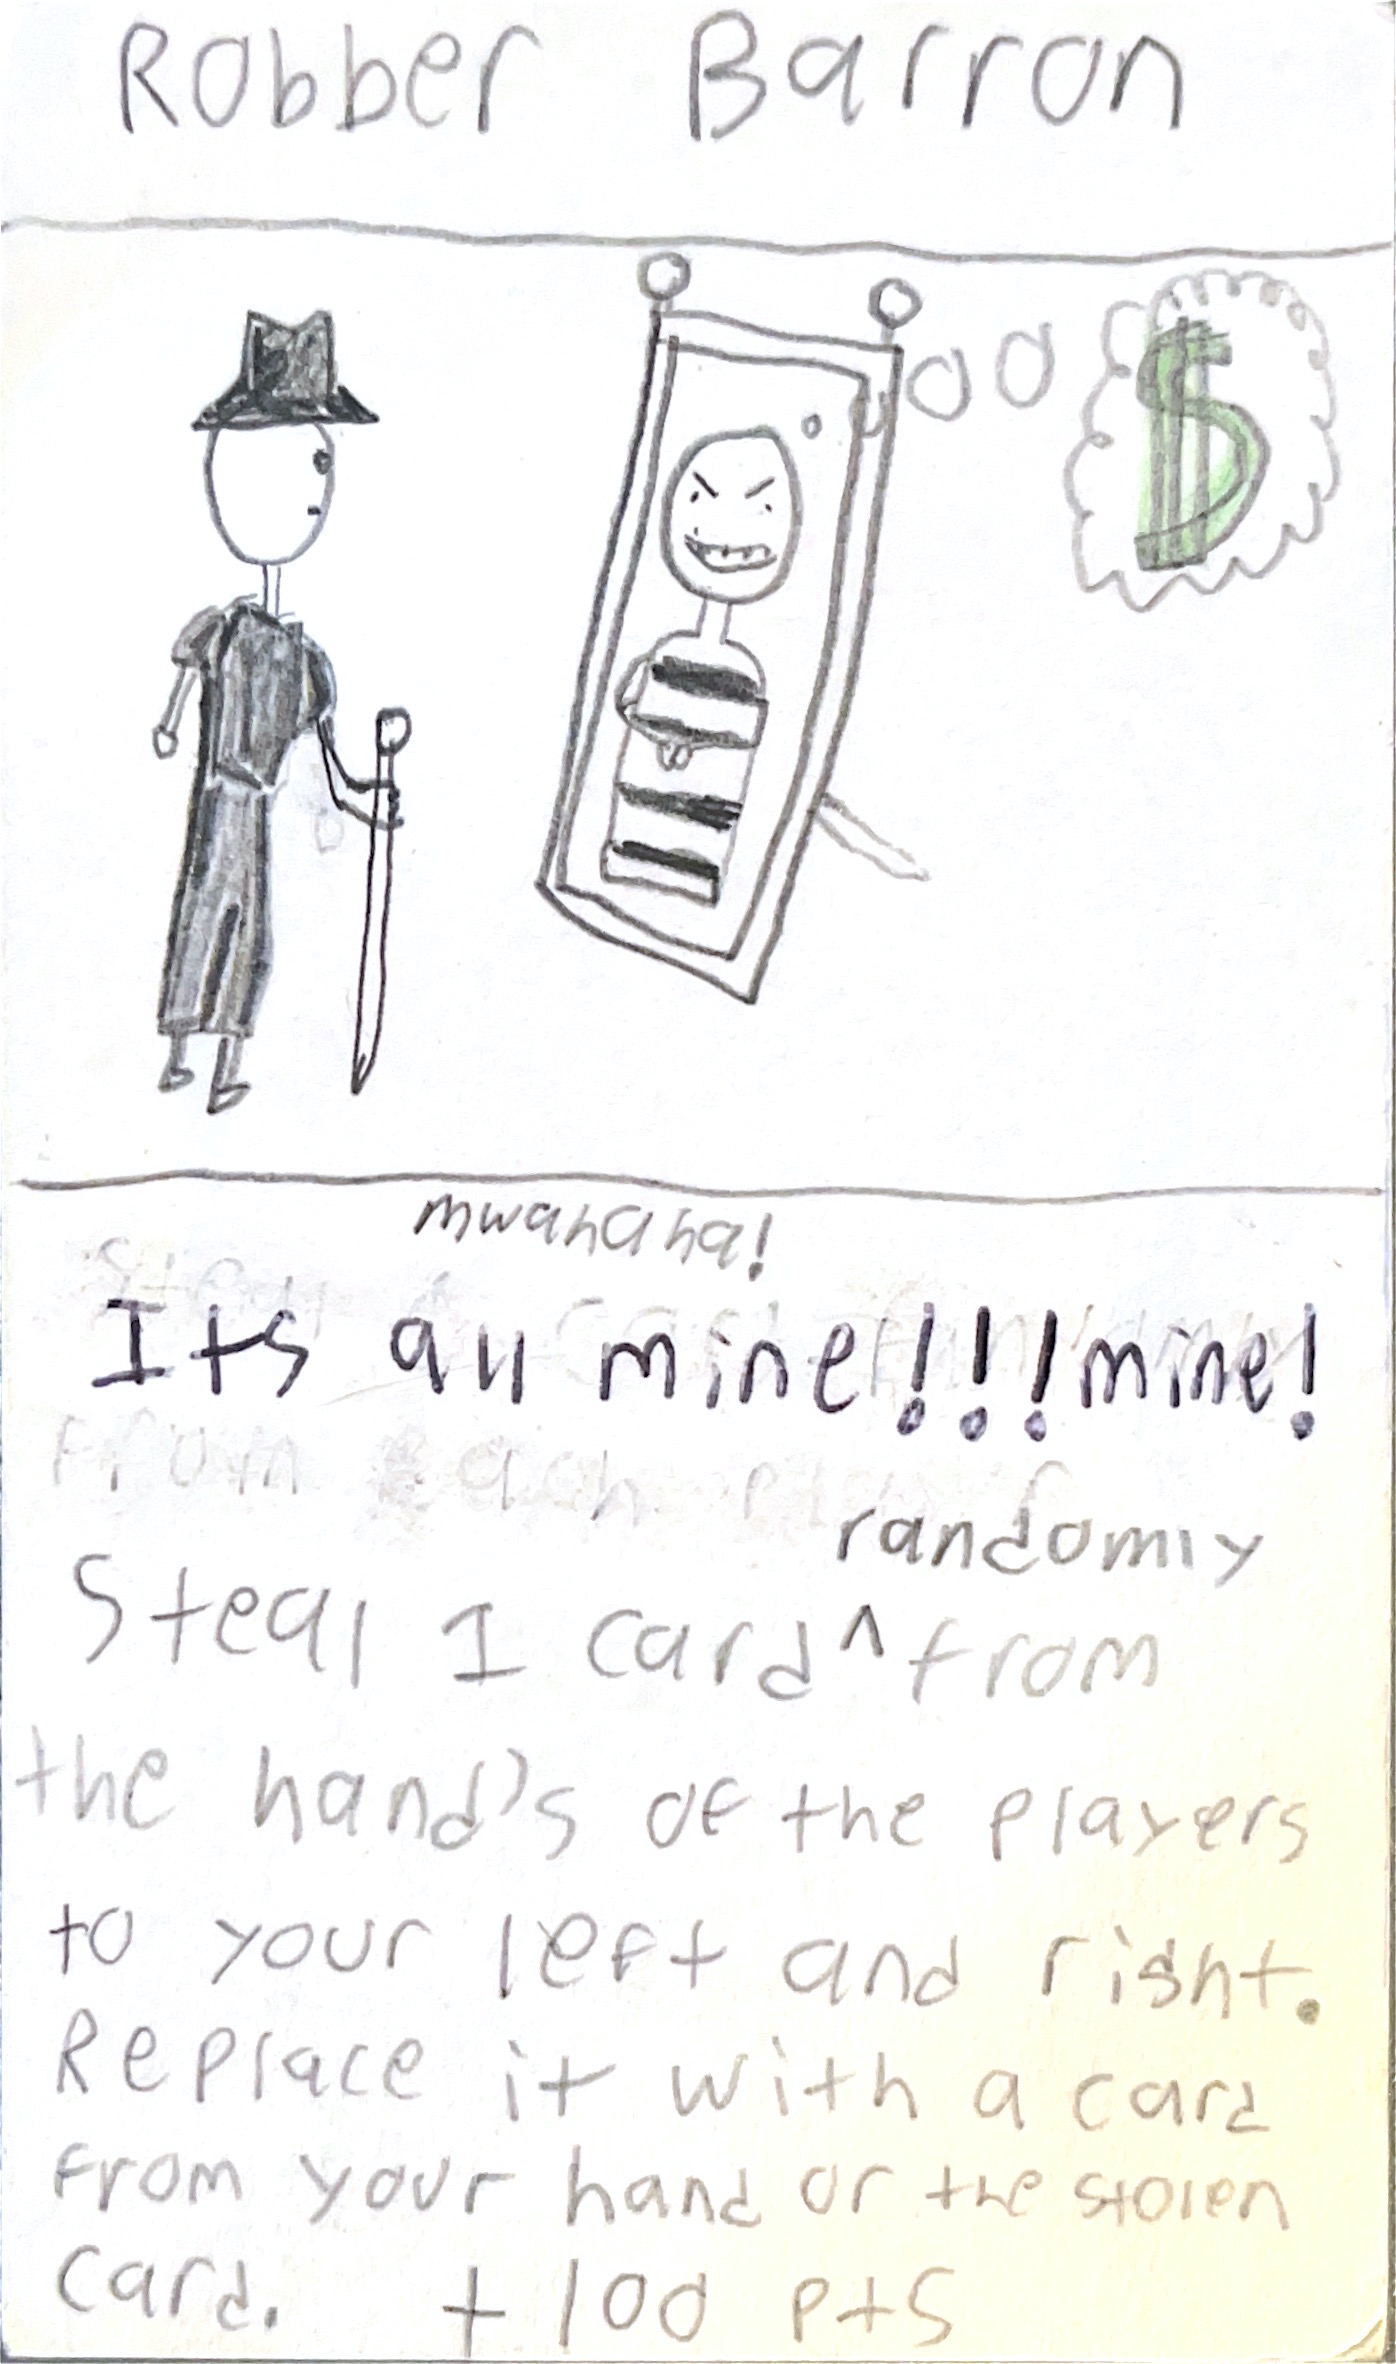 Robber Barron
$
mwahaha!
Its all mine!!! mine!
from each
randomly
Steal 1 card ^ from
the hand's of the players
to your left and right.
Replace it with a card
from your hand or the stolen
card. + 100 pts